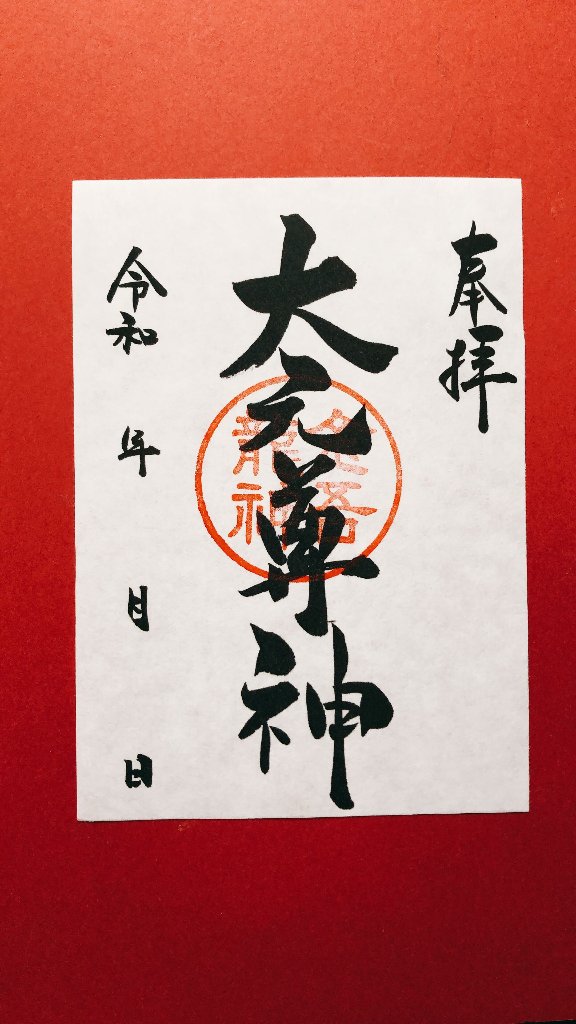 奉拝
大元尊神
龍神
令和 年 月 日